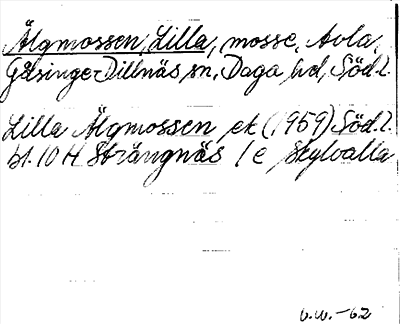 Älgmossen, Lilla, mosse, Avla,
Gåsinge-Dillnäs sn, Daga hd, Söd.l.
Lilla Älgmossen ek (1959) Söd.l.
bl. 10 H Strängnäs 1 e Skylvalla
-62